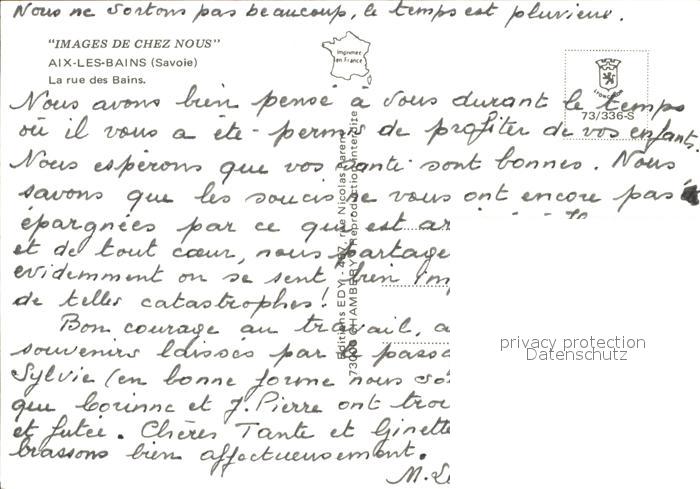 Nous ne sortons pas beaucoup, le temps est pluvieux.
"IMAGES DE CHEZ NOUS"
AIX-LES-BAINS (Savoie)
La rue des Bains.
Imprimée en France
LYONCOLOR
73/336-S
Nous avons bien pensé à vous durant le temps
où il vous a été permis de profiter de vos enfants.
Nous espérons que vos santé sont bonnes. Nous
savons que les soucis ne vous ont encore pas
épargnées par ce qui est ar
et de tout cœur, nous partage
evidemment on se sent bien imp
de telles catastrophes!
Bon courage au travail, a
souvenirs laissés par le passa
Sylvie (en bonne forme nous so
que Corinne et J. Pierre ont trou
et futée. Chères Tante et Ginette
brassons bien affectueusement.
M.
Editions EDY - 497, rue Nicolas Parent
73000 CHAMBERY Reproduction interdite
privacy protection
Datenschutz